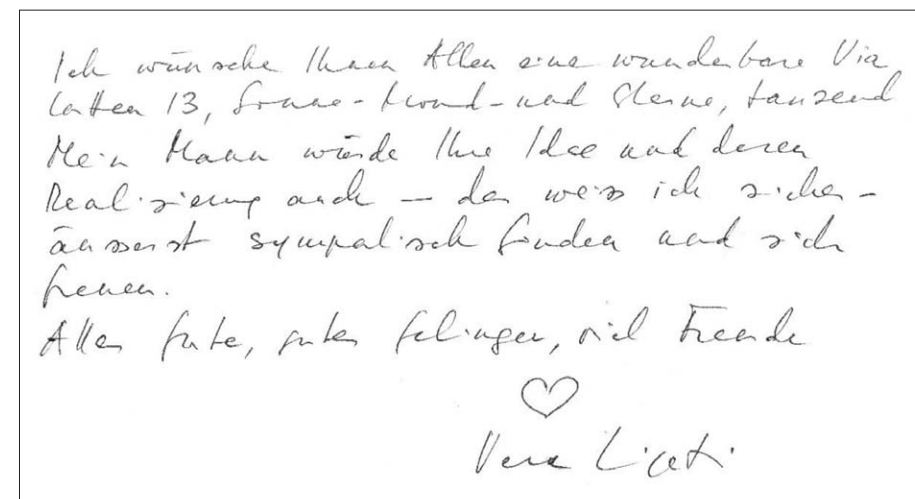 Ich wünsche Ihnen Allen eine wunderbare Via
Lattea 13, Sonne-Mond-und Sterne, tanzend
Mein Mann würde Ihre Idee und deren
Realisierung auch – das weiss ich sicher –
äusserst sympatisch finden und sich
freuen.
Alles Gute, gutes Gelingen, viel Freude
♡
Vera Ligeti